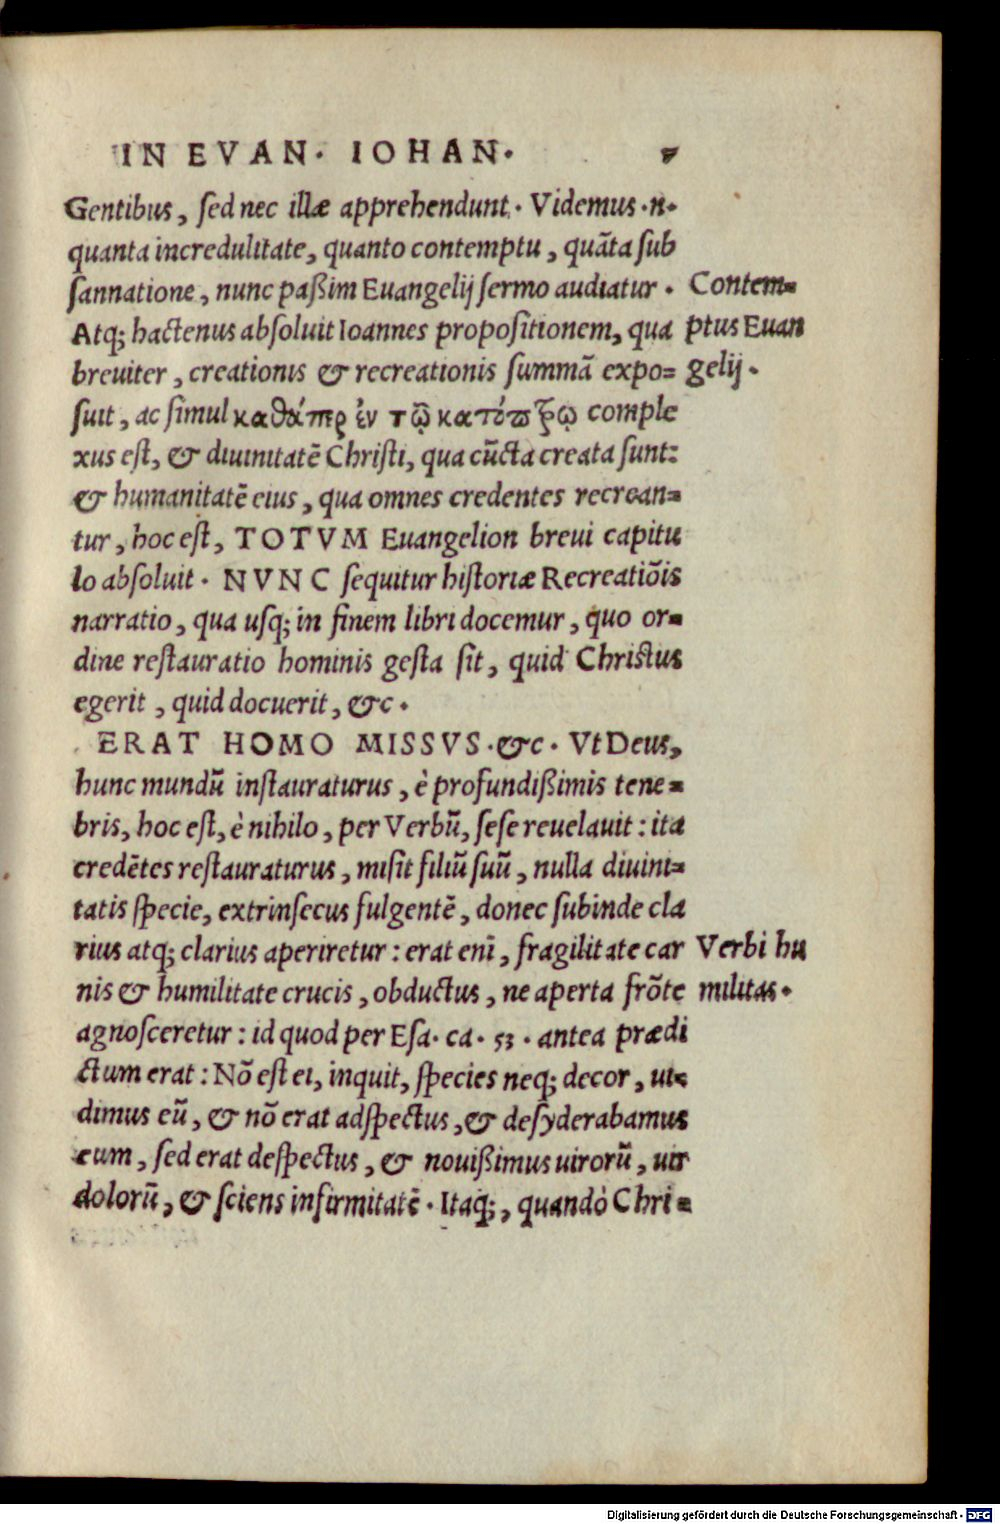 IN EVAN. IOHAN.
Gentibus, ſed nec illæ apprehendunt. Videmus .n.
quanta incredulitate, quanto contemptu, quãta ſub
ſannatione, nunc paßim Euangelij ſermo audiatur.
Contem=
Atq; hactenus abſoluit Ioannes propoſitionem, qua
ptus Euan
breuiter, creationis & recreationis ſummã expo=
gelij.
ſuit, ac ſimul καθάπερ ἐν τῷ κατόπτρῳ comple
xus eſt, & diuinitatẽ Chriſti, qua cũcta creata ſunt:
& humanitatẽ eius, qua omnes credentes recrean=
tur, hoc eſt, TOTVM Euangelion breui capitu
lo abſoluit. NVNC ſequitur hiſtoriæ Recreatiõis
narratio, qua uſq; in finem libri docemur, quo or=
dine reſtauratio hominis geſta ſit, quid Chriſtus
egerit, quid docuerit, &c.
ERAT HOMO MISSVS. &c. Vt Deus,
hunc mundũ inſtauraturus, è profundißimis tene=
bris, hoc eſt, è nihilo, per Verbũ, ſeſe reuelauit: ita
credẽtes reſtauraturus, miſit filiũ ſuũ, nulla diuini=
tatis ſpecie, extrinſecus fulgentẽ, donec ſubinde cla
rius atq; clarius aperiretur: erat enĩ, fragilitate car
Verbi hu
nis & humilitate crucis, obductus, ne aperta frõte
militas.
agnoſceretur: id quod per Eſa. ca. 53. antea prædi
ctum erat: Nõ eſt ei, inquit, ſpecies neq; decor, ui=
dimus eũ, & nõ erat adſpectus, & deſyderabamus
eum, ſed erat deſpectus, & nouißimus uirorũ, uir
dolorũ, & ſciens infirmitatẽ. Itaq;, quandò Chri=
Digitalisierung gefördert durch die Deutsche Forschungsgemeinschaft - DFG